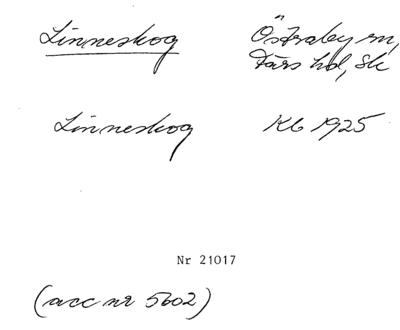 Linneskog Östraby sn,
Färs hd, Sk
Linneskog Kb 1925
Nr 21017
(acc nr 5602)